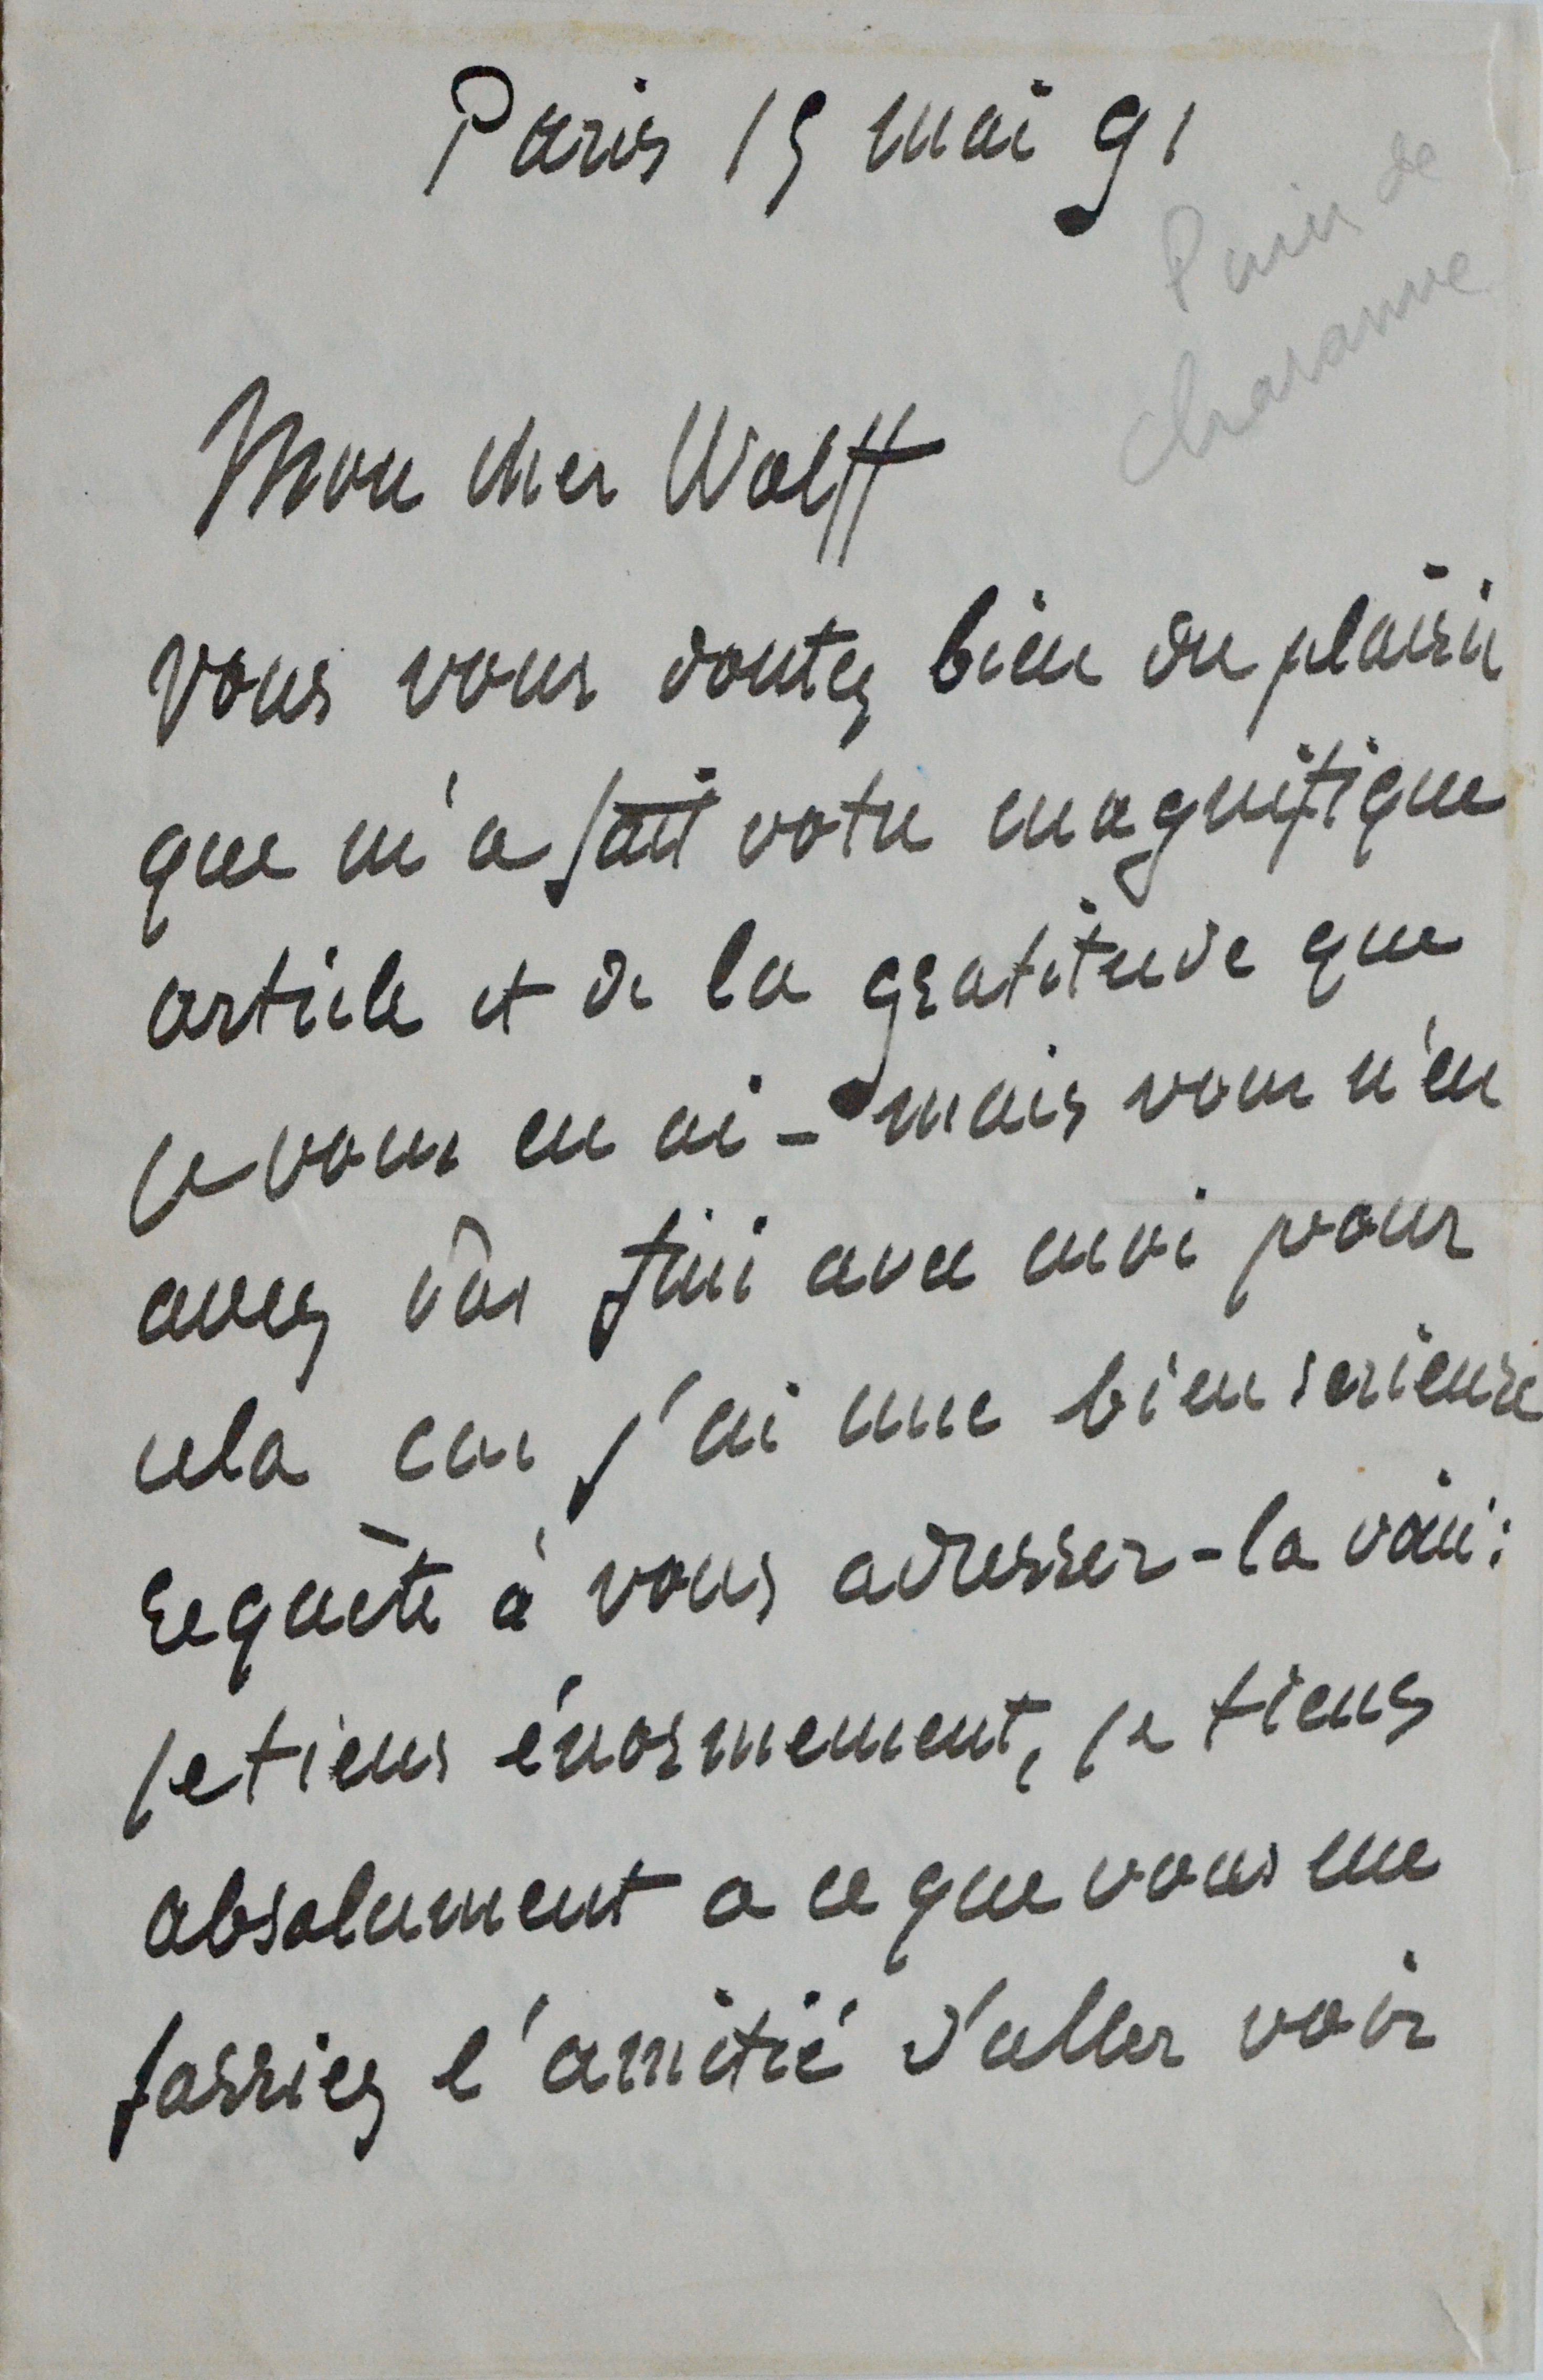 Paris 15 mai 91
Puvis de
Chavanne
Mon cher Wolff
Vous vous doutez bien du plaisir
que m'a fait votre magnifique
article et de la gratitude que
je vous en ai - mais vous n'en
avez pas fini avec moi pour
cela car j'ai une bien serieuse
requête à vous adresser - la voici :
je tiens énormement, je tiens
absolument a ce que vous me
fassiez l'amitié d'aller voir